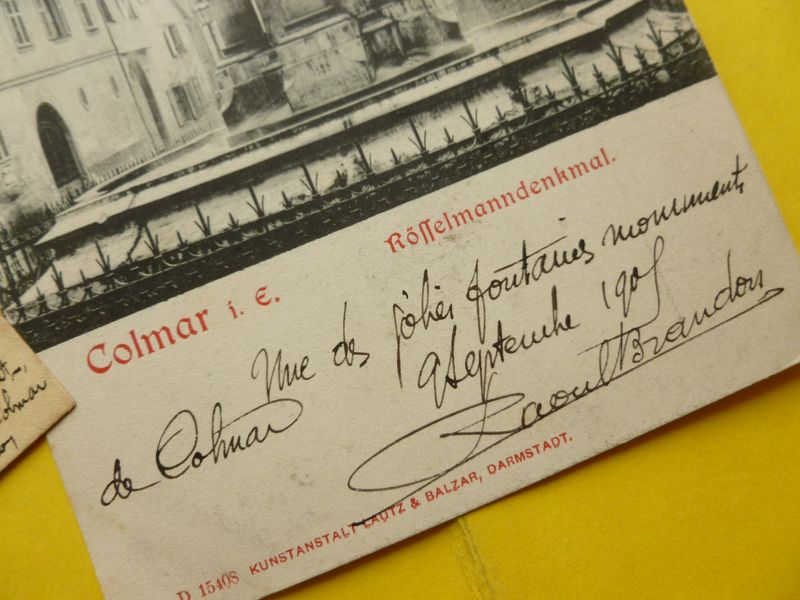 Rösselmanndenkmal.
Colmar i. E.
Une des jolies fontaines monuments
de Colmar
9 Septembre 1905
Raoul Brandon
KUNSTANSTALT LAUTZ & BALZAR, DARMSTADT.
D 15408
olmar